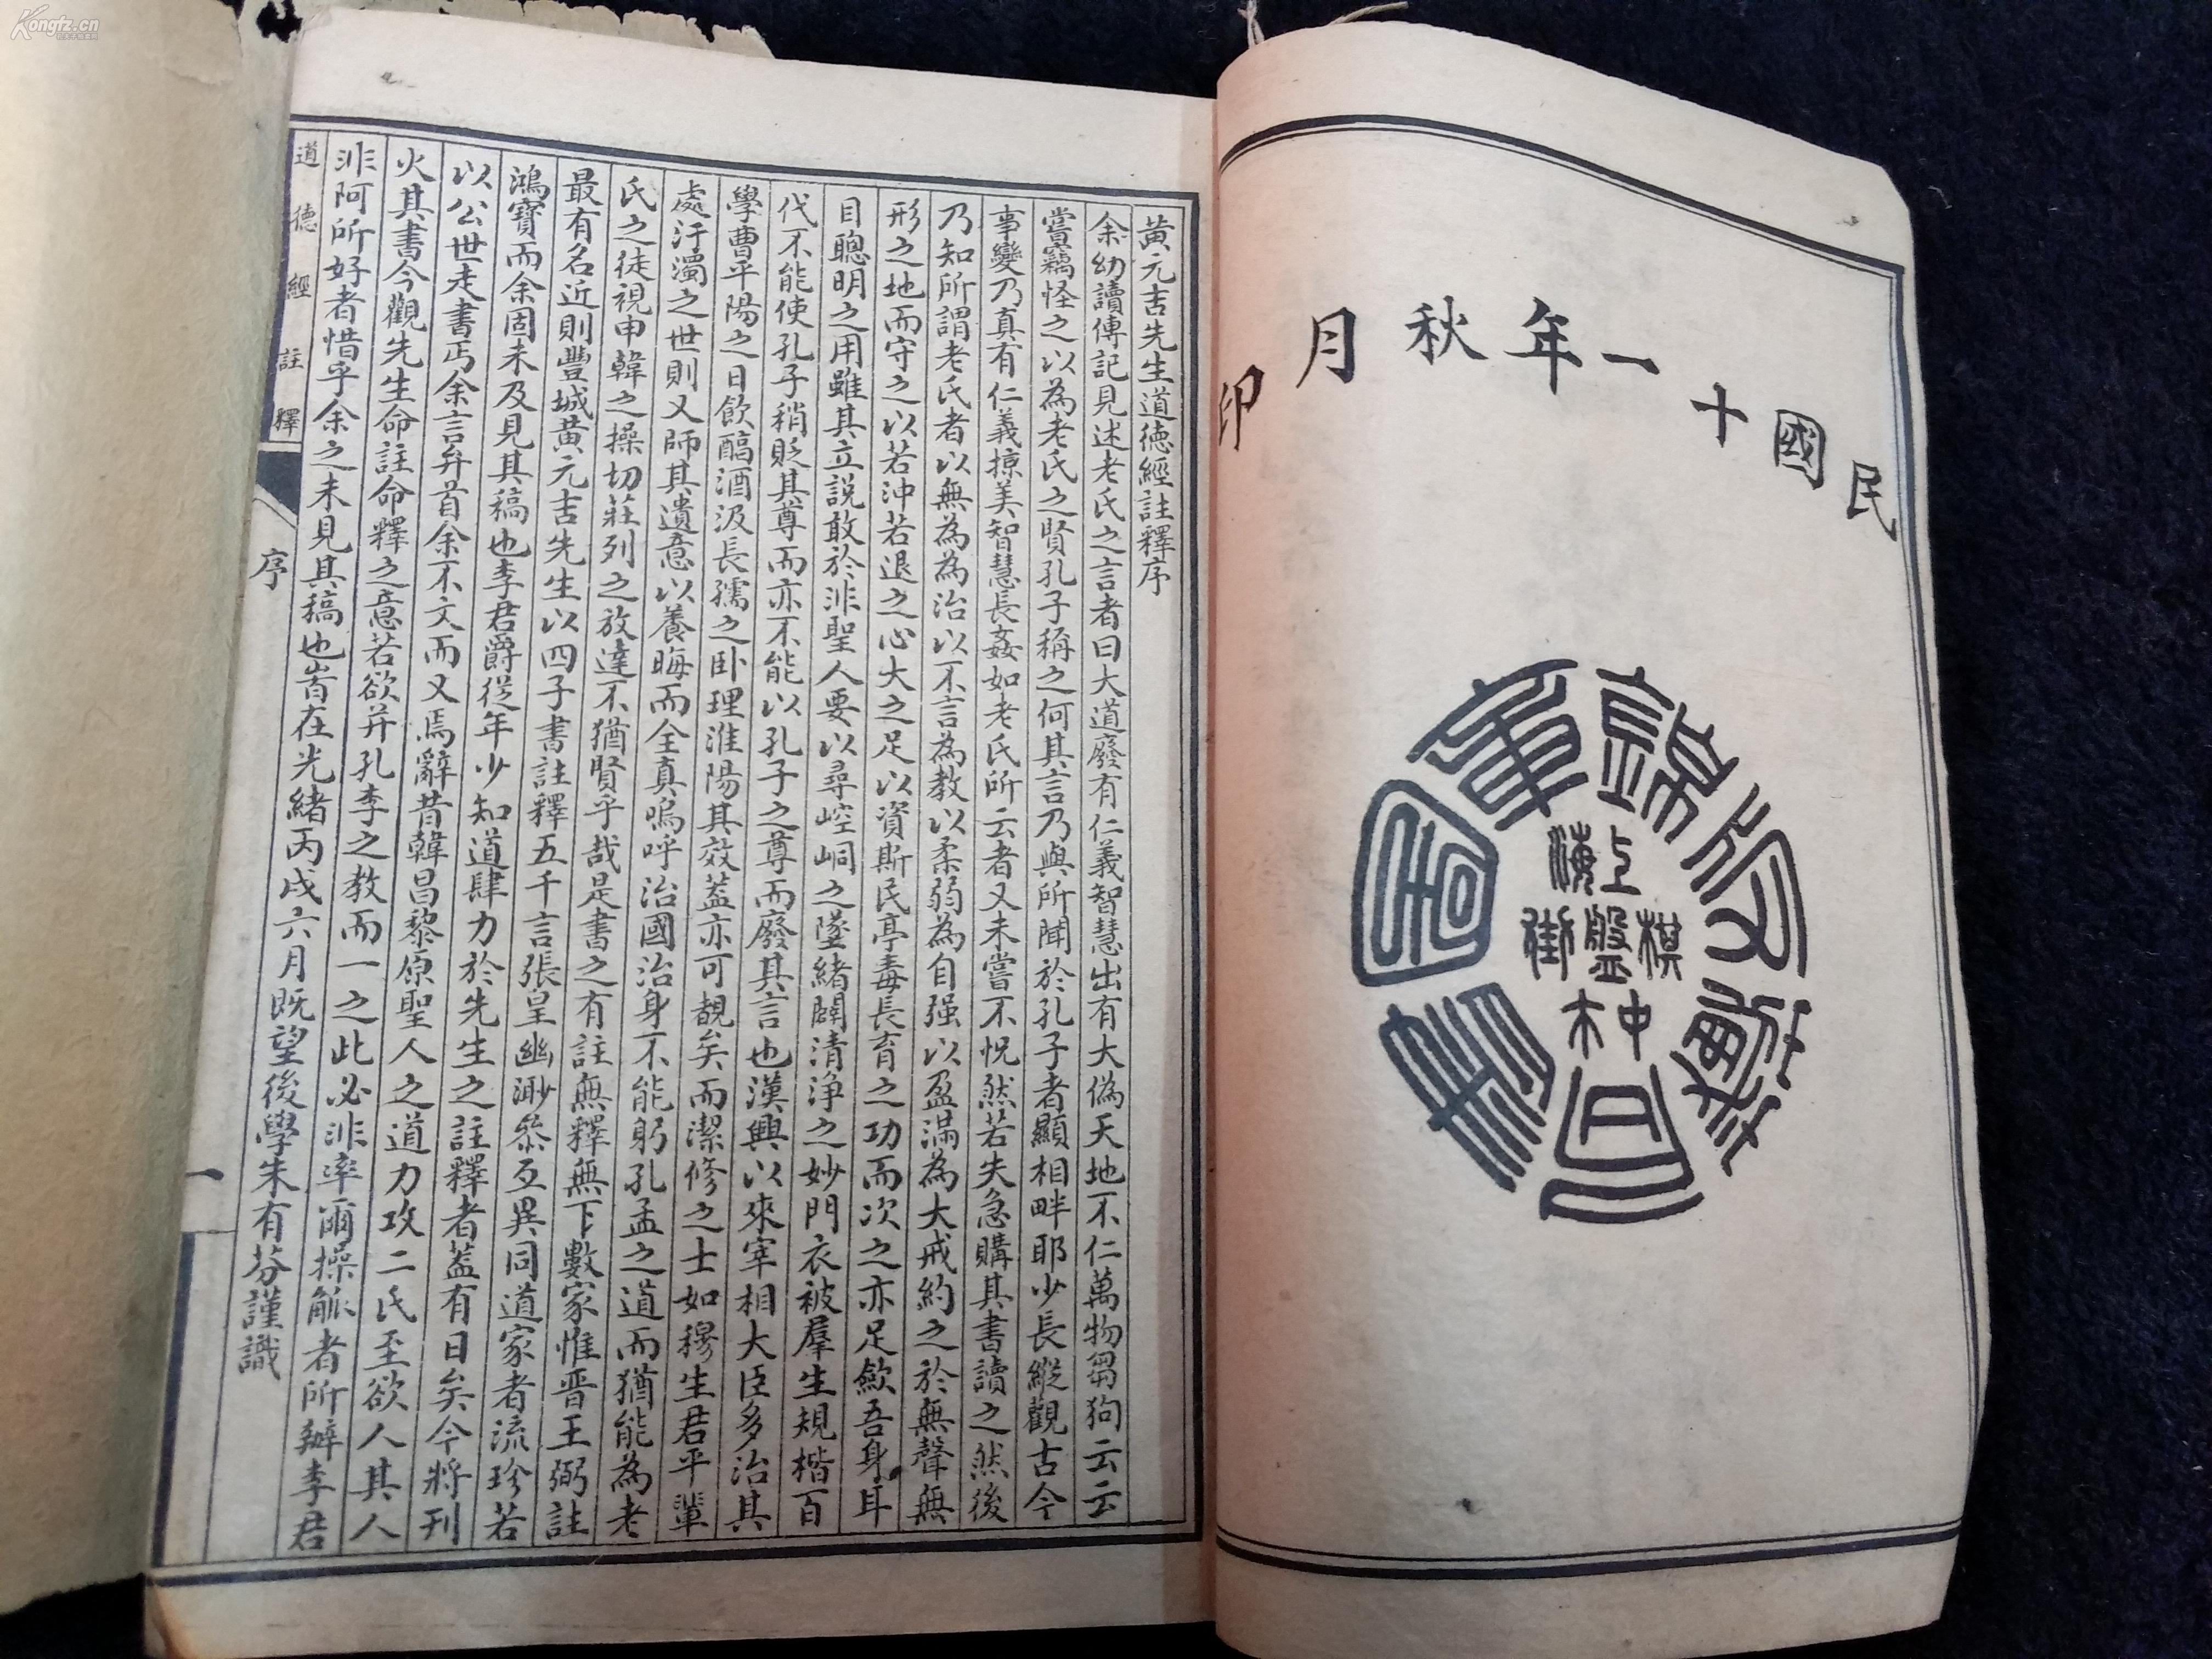 民國十一年秋月印
錦章圖書
上海
棋盤街
黃元吉先生道德經註釋序
余幼讀傳記見述老氏之言者曰大道廢有仁義智慧出有大偽天地不仁萬物芻狗云云
嘗竊怪之以為老氏之賢孔子稱之何其言乃與所聞於孔子者顯相畔耶少長縱觀古今
事變乃真有仁義掠美智慧長姦如老氏所云者又未嘗不怳然若失急購其書讀之然後
乃知所謂老氏者以無為為治以不言為教以柔弱為自强以盈滿為大戒約之於無聲無
形之地而守之以若沖若退之心大之足以資斯民亭毒長育之功而次之亦足歛吾身耳
目聰明之用雖其立說敢於非聖人要以尋崆峒之墜緒闢清淨之妙門衣被羣生規楷百
代不能使孔子稍貶其尊而亦不能以孔子之尊而廢其言也漢興以來宰相大臣多治其
學曹平陽之日飲醕酒汲長孺之卧理淮陽其效蓋亦可覩矣而潔修之士如穆生君平輩
處汙濁之世則又師其遺意以養晦而全真嗚呼治國治身不能躬孔孟之道而猶能為老
氏之徒視申韓之操切莊列之放達不猶賢乎哉是書之有註無釋無下數家惟晋王弼註
最有名近則豐城黃元吉先生以四子書註釋五千言張皇幽渺參互異同道家者流珍若
鴻寶而余固未及見其稿也李君爵從年少知道肆力於先生之註釋者蓋有日矣今將刊
以公世走書丐余言弁首余不文而又焉辭昔韓昌黎原聖人之道力攻二氏至欲人其人
火其書今觀先生命註命釋之意若欲并孔李之教而一之此必非率爾操觚者所辦李君
非阿所好者惜乎余之未見其稿也旹在光緒丙戌六月既望後學朱有芬謹識
道德經註釋
序
一
Kongfz.cn